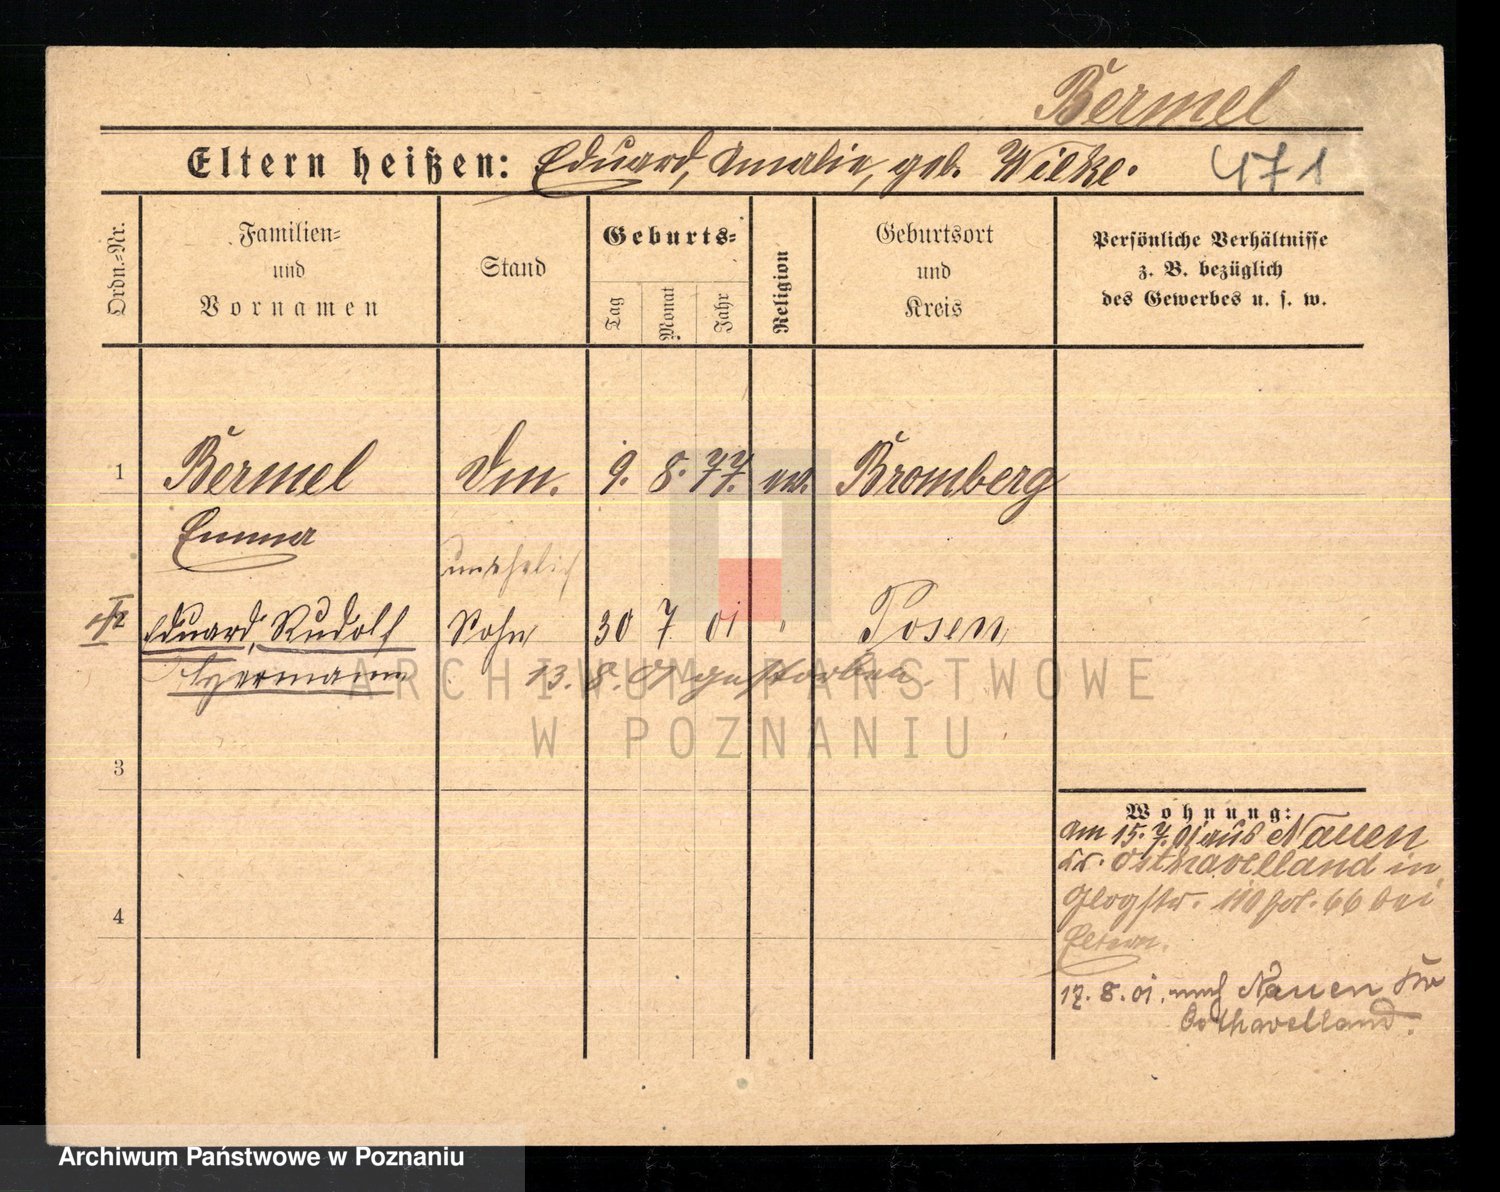 Bermel
Eltern heißen: Eduard, Amalie, geb. Wilke.
471
Ordn.-Nr.
Familien-
und
Vornamen
Stand
Geburts-
Tag
Monat
Jahr
Religion
Geburtsort
und
Kreis
Persönliche Verhältnisse
z. B. bezüglich
des Gewerbes u. s. w.
1 Bermel 9. 8. 77. ev. Bromberg
Emma
unehelich
2 Eduard, Rudolf Sohn 30 7 01 Posen
Hermann 13. 8. 01 gestorben.
ARCHIWUM PAŃSTWOWE
W POZNANIU
3
Wohnung:
Am 15. 7. 01 aus Nauen
Kr. Osthavelland in
Glogstr. 110 bei
Eltern.
4
17. 8. 01. nach Nauen Kr
Osthavelland.
Archiwum Państwowe w Poznaniu